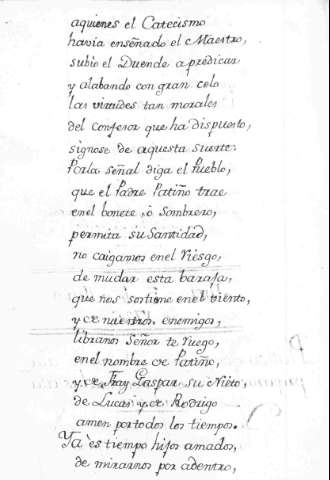 aquienes el Catecismo
havia enseñado el Maestro,
subio el Duende a predicar
y alabando con gran celo
las virtudes tan morales
del confesor que ha dispuesto,
signose de aquesta suerte:
Porla señal diga el Pueblo,
que el Padre Patiño trae
enel bonete, ò Sombrero,
permita su Santidad,
no caigamos enel riesgo,
de mudar esta baraja,
que nos sostiene enel viento,
y de nuestros enemigos,
libranos Señor te ruego,
enel nombre de Patiño,
y de Fray Gaspar su Nieto,
de Lucas y de Rodrigo
amen portodos los tiempos.
Ya es tiempo hijos amados,
de mirarnos por adentro,